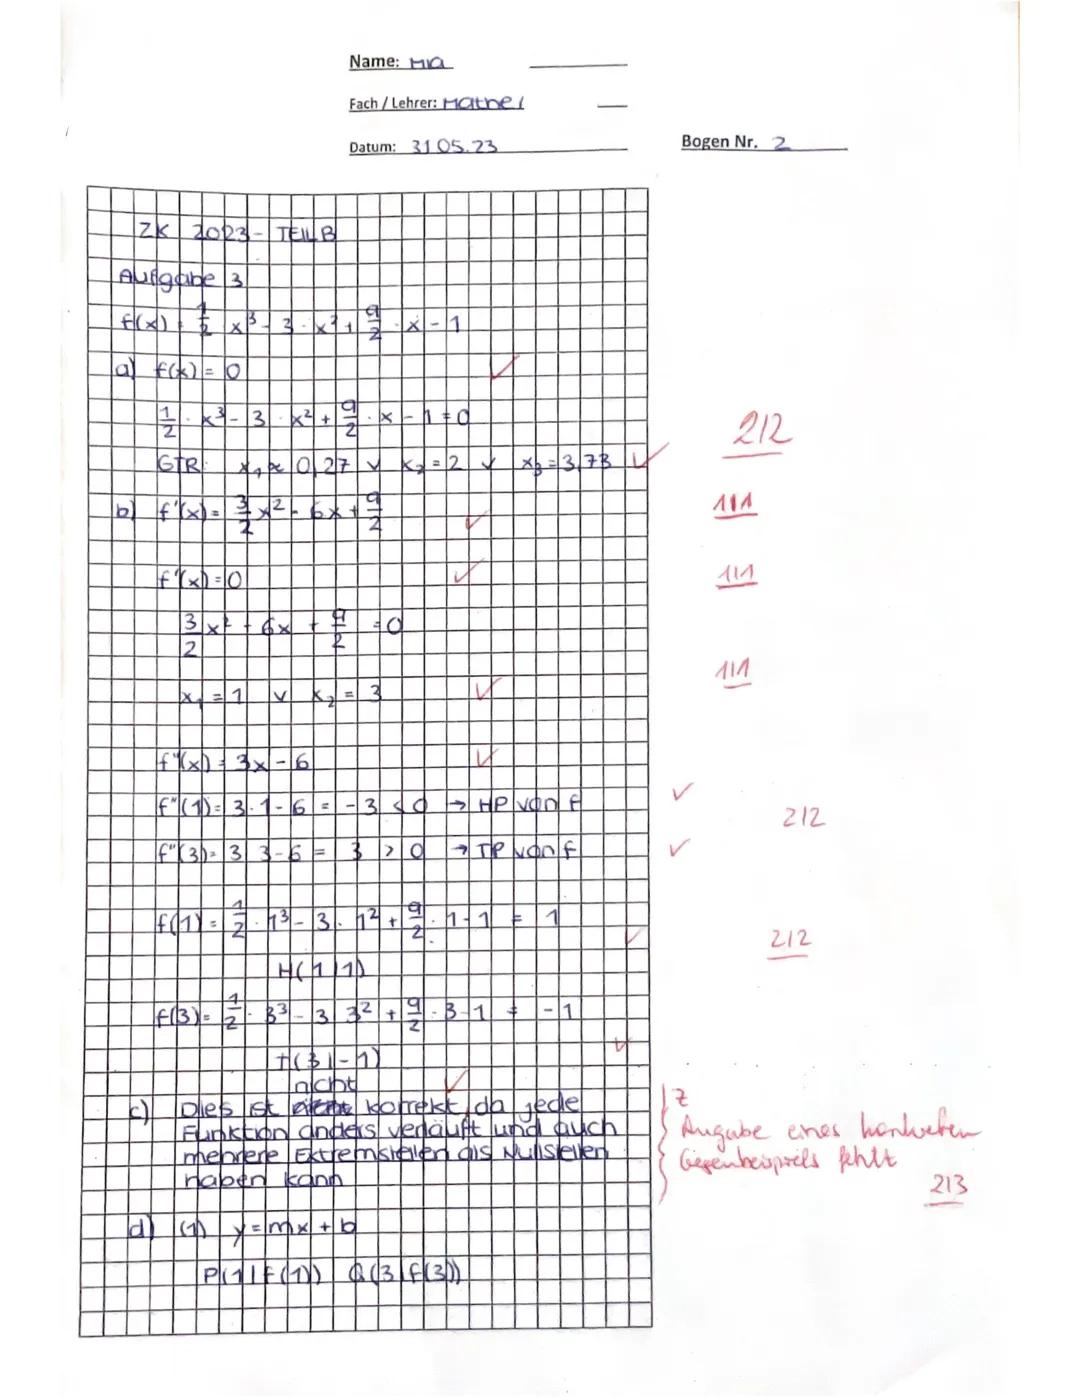 Name: Mia
Fach / Lehrer: Mathe /
Datum: 31.05.23
Bogen Nr. 2
ZK 2023 - TEIL B
Aufgabe 3
f(x) = 1/2 x³ - 3 · x² + 9/2 · x - 1
a) f(x) = 0 ✓
1/2 · x³ - 3 · x² + 9/2 · x - 1 = 0
2/2
GTR: x₁ ≈ 0,27 ∨ x₂ = 2 ∨ x₃ = 3,73 ✓
b) f'(x) = 3/2 x² - 6x + 9/2 ✓
1/1
f'(x) = 0 ✓
1/1
3/2 x² - 6x + 9/2 = 0
x₁ = 1 ∨ x₂ = 3 ✓
1/1
f"(x) = 3x - 6 ✓
f"(1) = 3 · 1 - 6 = -3 < 0 → HP von f ✓
2/2
f"(3) = 3 · 3 - 6 = 3 > 0 → TP von f ✓
f(1) = 1/2 · 1³ - 3 · 1² + 9/2 · 1 - 1 = 1 ✓
2/2
H(1|1)
f(3) = 1/2 · 3³ - 3 · 3² + 9/2 · 3 - 1 = -1
T(3|-1) ✓
nicht
c) Dies ist korrekt, da jede ✓
Funktion anders verläuft und auch
mehrere Extremstellen als Nullstellen
haben kann
Z
Angabe eines konkreten
Gegenbeispiels fehlt
2/3
d) (1) y = mx + b
P(1|f(1)) Q(3|f(3))